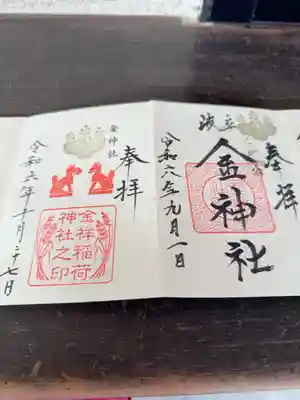 奉拝
岐阜
金神社
令和六年九月一日
奉拝
金神社
金祥稲荷
神社之印
令和六年十月二十七日